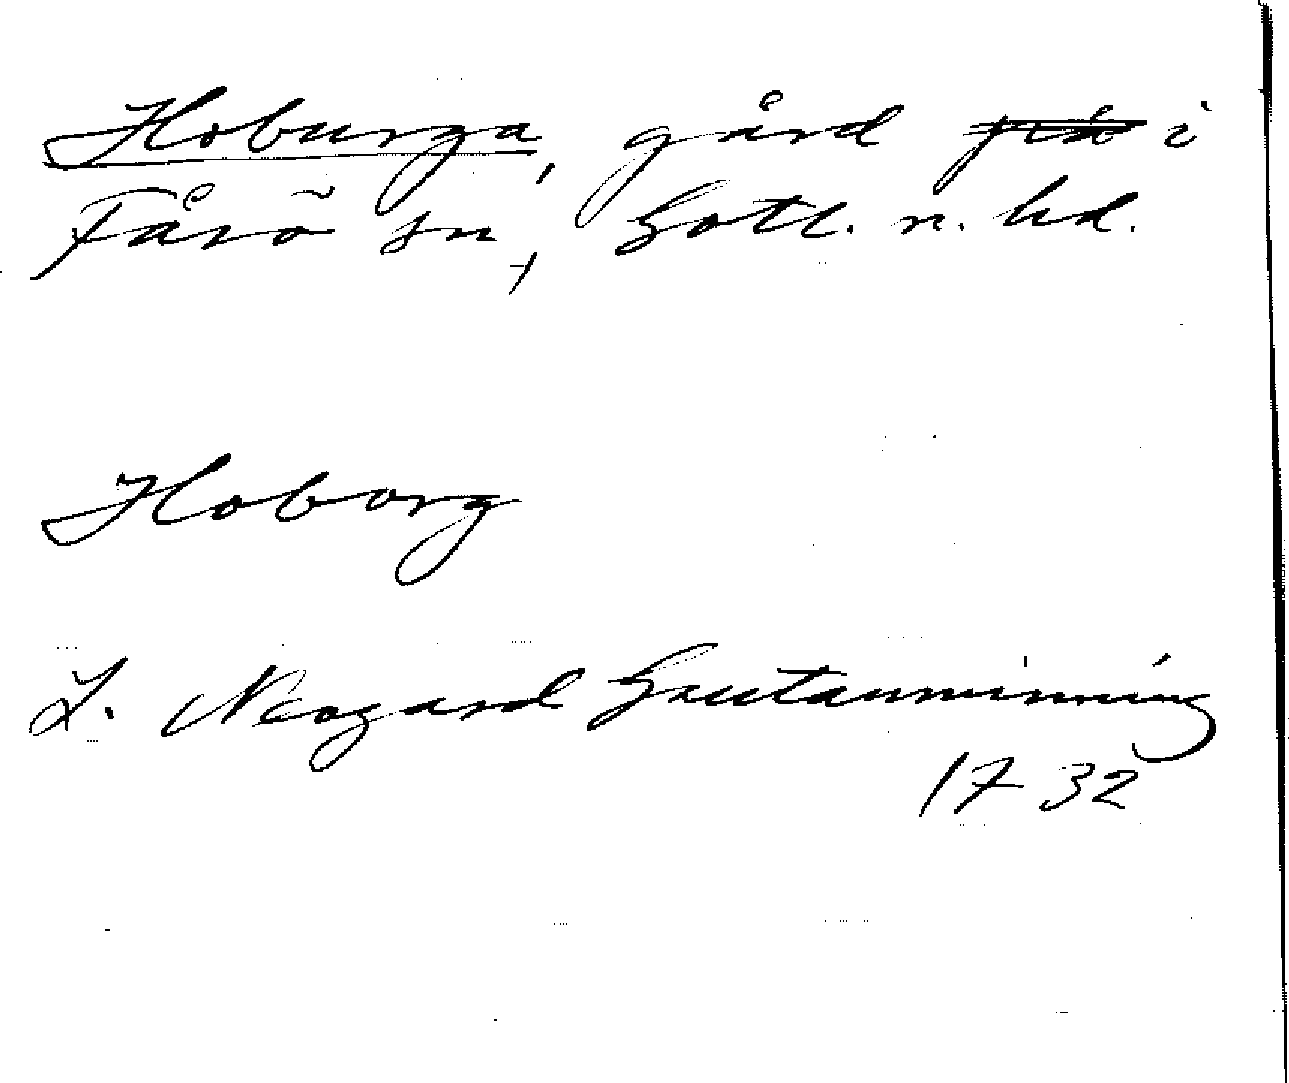 Hoburga, gård i
Fårö sn, Gotl. n. hd.
Hoborg
L. Neogard Gautauminning
1732